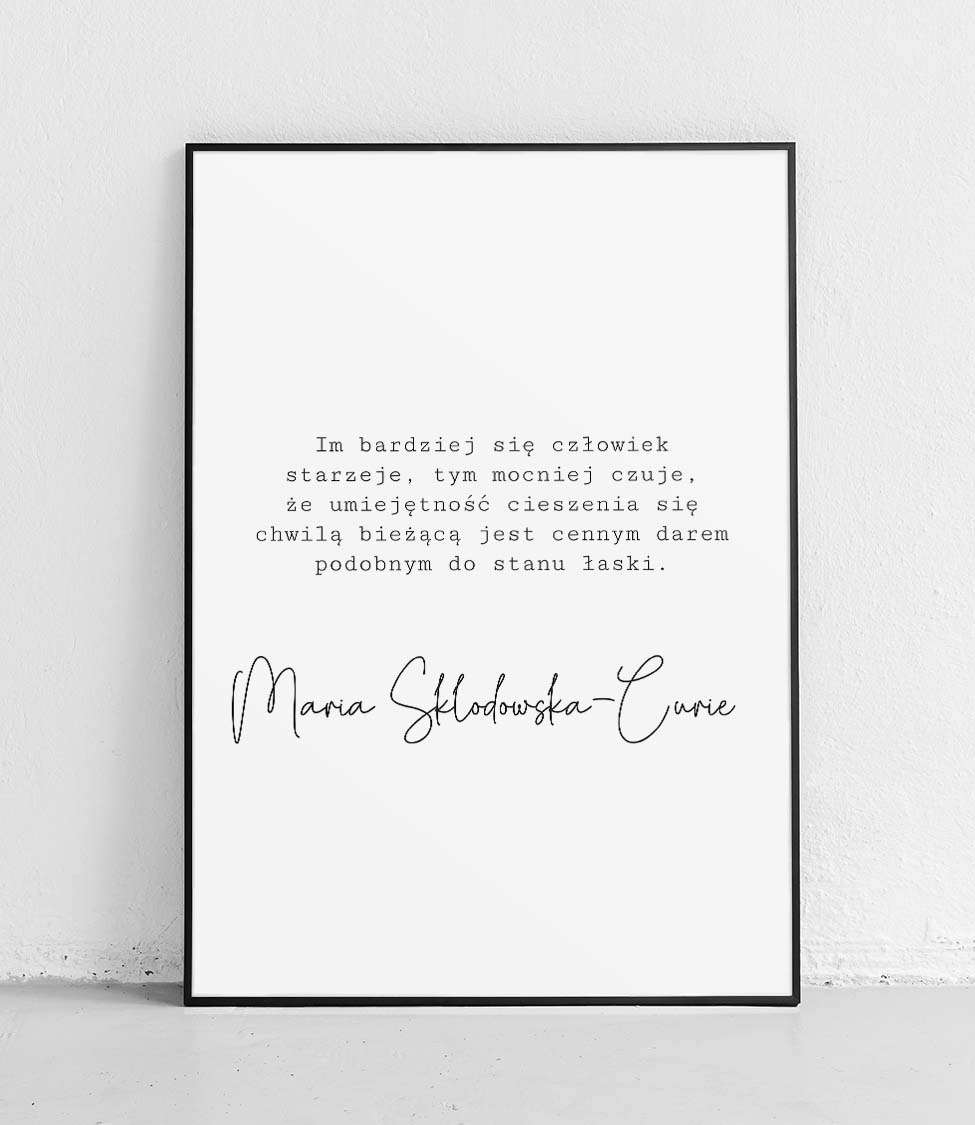 Im bardziej się człowiek
starzeje, tym mocniej czuje,
że umiejętność cieszenia się
chwilą bieżącą jest cennym darem
podobnym do stanu łaski.
Maria Skłodowska-Curie